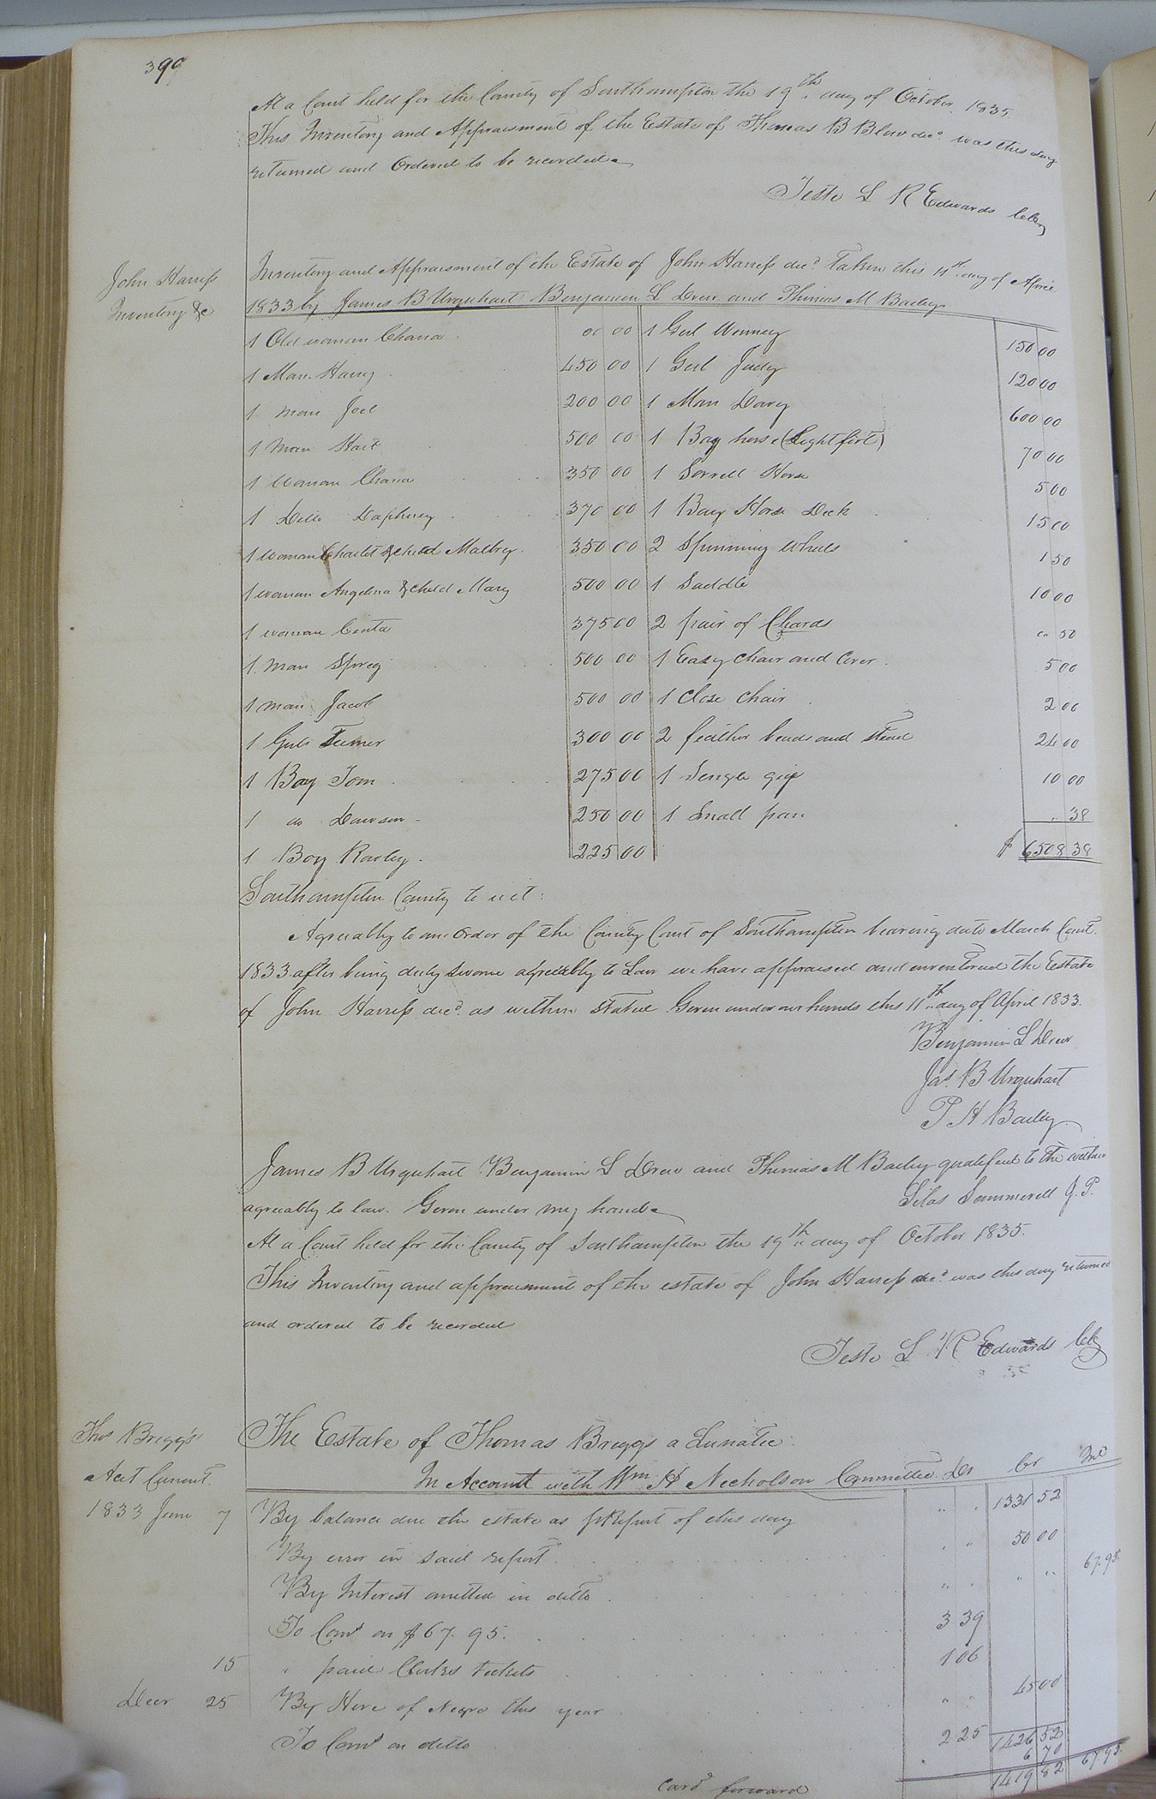 390
At a Court held for the County of Southampton the 19th day of October 1835
This Inventory and Appraisment of the Estate of Thomas B Blow decd was this day
returned and Ordered to be recorded
Teste L R Edwards Clk
John Harriss
Inventory &c
Inventory and Appraisment of the Estate of John Harriss decd Taken this 11th day of April
1833 by James B Urquhart Benjamin L Drew and Thomas M Bailey
1 Old woman Chana 00 00 1 Girl Winney 150 00
1 Man Harry 450 00 1 Girl Judy 120 00
1 man Joe 200 00 1 Man Davy 600 00
1 man 500 00 1 Bay horse (Lightfoot) 70 00
1 Woman Chana 350 00 1 Sorrell Horse 5 00
1 Ditto Daphney 370 00 1 Bay Horse Dick 15 00
1 woman Charlot & child Mallory 350 00 2 Spinning Wheels 1 50
1 woman Angelina & child Mary 500 00 1 Saddle 10 00
1 woman 375 00 2 pair of Chards 50
1 man Sprig 500 00 1 Easy chair and Cover 5 00
1 man Jacob 500 00 1 Close chair 2 00
1 Girl 300 00 2 feather beads and stead 24 00
1 Boy Tom 275 00 1 Single gig 10 00
1 do Dawson 250 00 1 Small pan 38
1 Boy Rawley 225 00 $ 6508 38
Southampton County to wit:
Agreeably to an Order of the County Court of Southampton bearing date March Court
1833 after being duly sworn agreeably to Law we have appraised and inventored the Estate
of John Harriss decd as within stated Given under our hands this 11th day of April 1833
Benjamin L Drew
Jas. B Urquhart
T. H Bailey
James B Urquhart Benjamin L Drew and Thomas M Bailey qualified to the within
agreeably to law. Given under my hand
Silas Summerell J. P.
At a Court held for the County of Southampton the 19th day of October 1835.
This Inventory and appraisment of the estate of John Harriss decd was this day returned
and ordered to be recorded
Teste L R Edwards Clk
Thos Briggs'
Act Current
The Estate of Thomas Briggs a Lunatic
In Account with Wm H Nicholson Committee Dr Cr Int
1833 June 7 By balance due the estate as pr Report of this day " " 1331 52
By error in said report " " 50 00
By Interest omitted in ditto " " " " 67.95
To Coms on $67.95. 3 39
15 " paid Clerks tickets 1 06
Decr 25 By Hire of Negro this year " " 45 00
To Coms on ditto 2 25 1426 52
6 70
card forward 1419 82 67 95